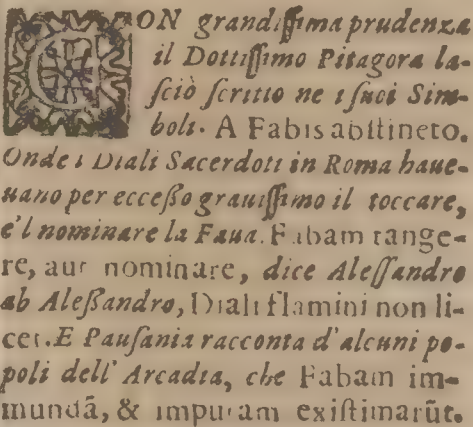 CON grandiſſima prudenza
il Dottiſſimo Pitagora la-
ſciò ſcritto ne i ſuoi Sim-
boli. A Fabis abſtineto.
Onde i Diali Sacerdoti in Roma haue-
uano per ecceßo grauiſſimo il toccare,
e'l nominare la Faua. Fabam tange-
re, aut nominare, dice Aleſſandro
ab Aleßandro, Diali flamini non li-
cet. E Pauſania racconta d'alcuni po-
poli dell' Arcadia, che Fabam im-
mundã, & impuram exiſtimarũt.